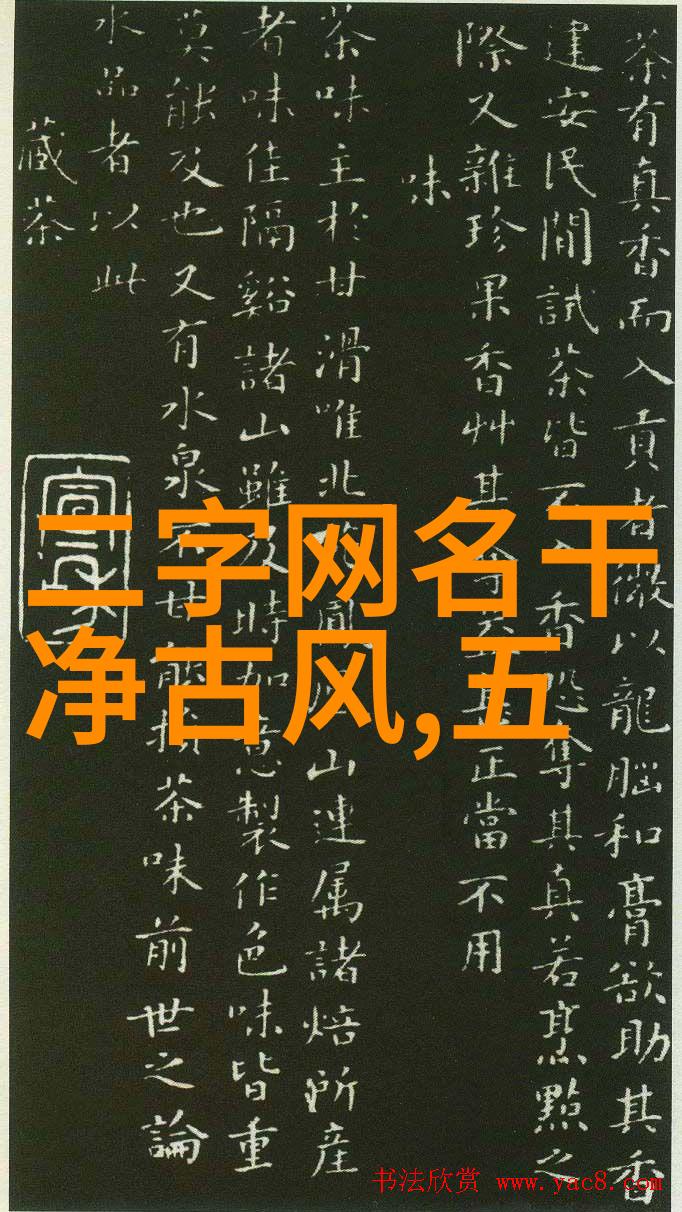 茶有真香而入貢者微以龍腦和膏欲助其香
建安民間試茶皆不香恐奪其真若烹點之
際又雜珍果香艸其正當不用
味
茶味主於甘滑唯北鳳山連属諸焙所產
者味佳隔谿諸山雖及時加意製作色味皆重
莫能及也又有水泉不甘能損茶味前世之論
水品者以此
藏茶
二字网名干
净古风,五
书法欣赏 www.yac8.com